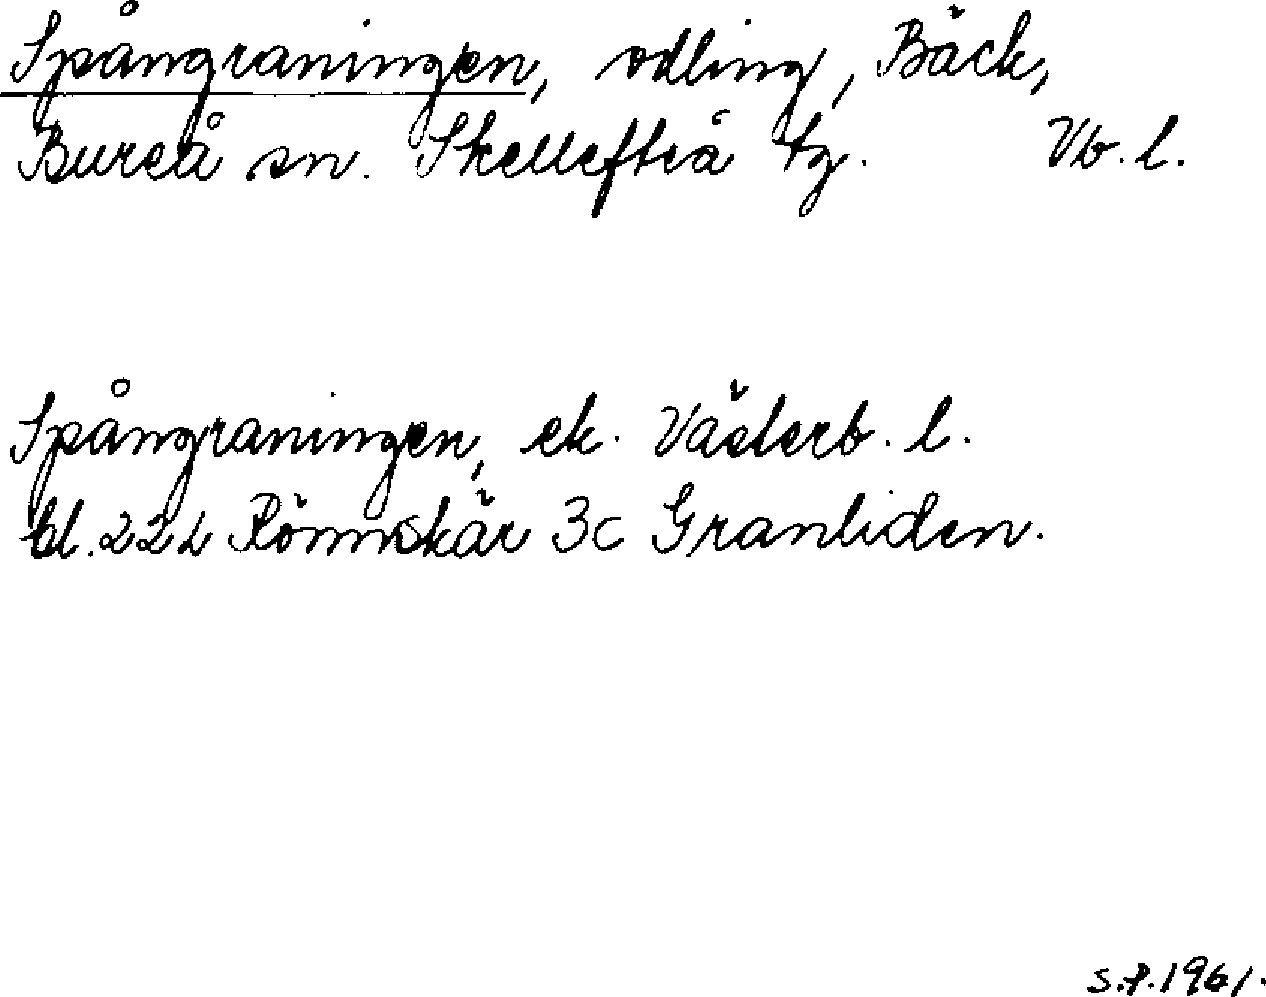 Spångraningen, odling, Bäck,
Bureå sn. Skellefteå tg. Vb. l.
Spångraningen, ek. Västerb. l.
bl. 222 Rönnskär 3c Granliden.
S.P. 1961.